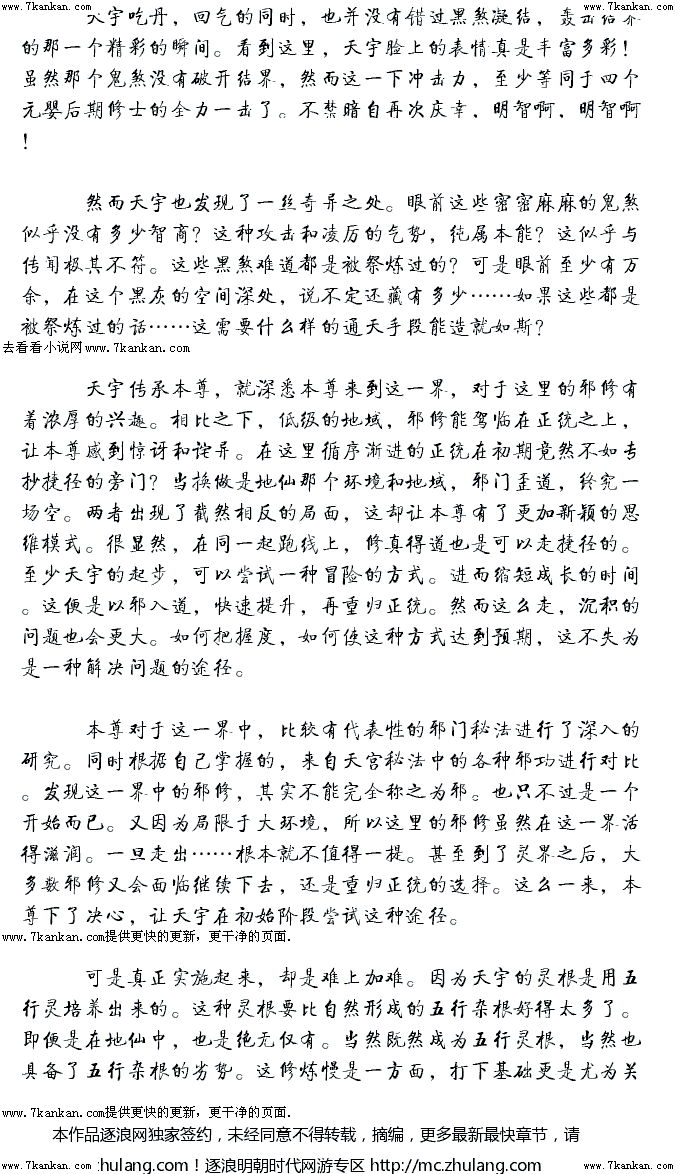 www.7kankan.com www.7kankan.com
天宇吃丹，回气的同时，也并没有错过黑煞凝结，轰击结界
的那一个精彩的瞬间。看到这里，天宇脸上的表情真是丰富多彩！
虽然那个鬼煞没有破开结界，然而这一下冲击力，至少等同于四个
元婴后期修士的全力一击了。不禁暗自再次庆幸，明智啊，明智啊
！
然而天宇也发现了一丝奇异之处。眼前这些密密麻麻的鬼煞
似乎没有多少智商？这种攻击和凌厉的气势，纯属本能？这似乎与
传闻极其不符。这些黑煞难道都是被祭炼过的？可是眼前至少有万
余，在这个黑灰的空间深处，说不定还藏有多少……如果这些都是
被祭炼过的话……这需要什么样的通天手段能造就如斯？
去看看小说网www.7kankan.com
天宇传承本尊，就深悉本尊来到这一界，对于这里的邪修有
着浓厚的兴趣。相比之下，低级的地域，邪修能驾临在正统之上，
让本尊感到惊讶和诧异。在这里循序渐进的正统在初期竟然不如专
抄捷径的旁门？当换做是地仙那个环境和地域，邪门歪道，终究一
场空。两者出现了截然相反的局面，这却让本尊有了更加新颖的思
维模式。很显然，在同一起跑线上，修真得道也是可以走捷径的。
至少天宇的起步，可以尝试一种冒险的方式。进而缩短成长的时间
。这便是以邪入道，快速提升，再重归正统。然而这么走，沉积的
问题也会更大。如何把握度，如何使这种方式达到预期，这不失为
是一种解决问题的途径。
本尊对于这一界中，比较有代表性的邪门秘法进行了深入的
研究。同时根据自己掌握的，来自天宫秘法中的各种邪功进行对比
。发现这一界中的邪修，其实不能完全称之为邪。也只不过是一个
开始而已。又因为局限于大环境，所以这里的邪修虽然在这一界活
得滋润。一旦走出……根本就不值得一提。甚至到了灵界之后，大
多数邪修又会面临继续下去，还是重归正统的选择。这么一来，本
尊下了决心，让天宇在初始阶段尝试这种途径。
www.7kankan.com提供更快的更新，更干净的页面.
可是真正实施起来，却是难上加难。因为天宇的灵根是用五
行灵培养出来的。这种灵根要比自然形成的五行杂根好得太多了。
即便是在地仙中，也是绝无仅有。当然既然成为五行灵根，当然也
具备了五行杂根的劣势。这修炼慢是一方面，打下基础更是尤为关
www.7kankan.com提供更快的更新，更干净的页面.
本作品逐浪网独家签约，未经同意不得转载，摘编，更多最新最快章节，请
www.7kankan.com zhulang.com！逐浪明朝时代网游专区 http://mc.zhulang.com www.7kankan.com